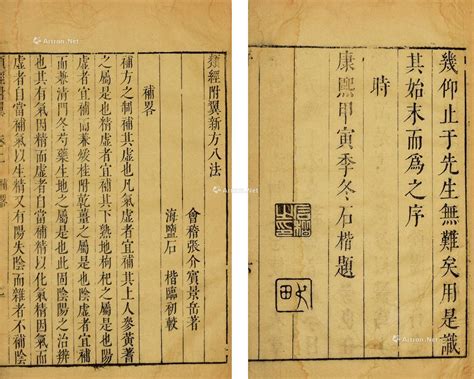 幾仰止于先生無難矣用是識
其始末而為之序
時
康熙甲寅季冬石楷題
類經附翼新方八法
會稽張介賓景岳著
海鹽石 楷臨初較
補畧
補方之制補其虛也凡氣虛者宜補其上人參黃耆
之屬是也精虛者宜補其下熟地枸杞之屬是也陽
虛者宜補而兼煖桂附乾薑之屬是也陰虛者宜補
而兼清門冬芍藥生地之屬是也此固陰陽之治辨
也其有氣因精而虛者自當補精以化氣精因氣而
虛者自當補氣以生精又有陽失陰而離者不補陰
Artron.Net